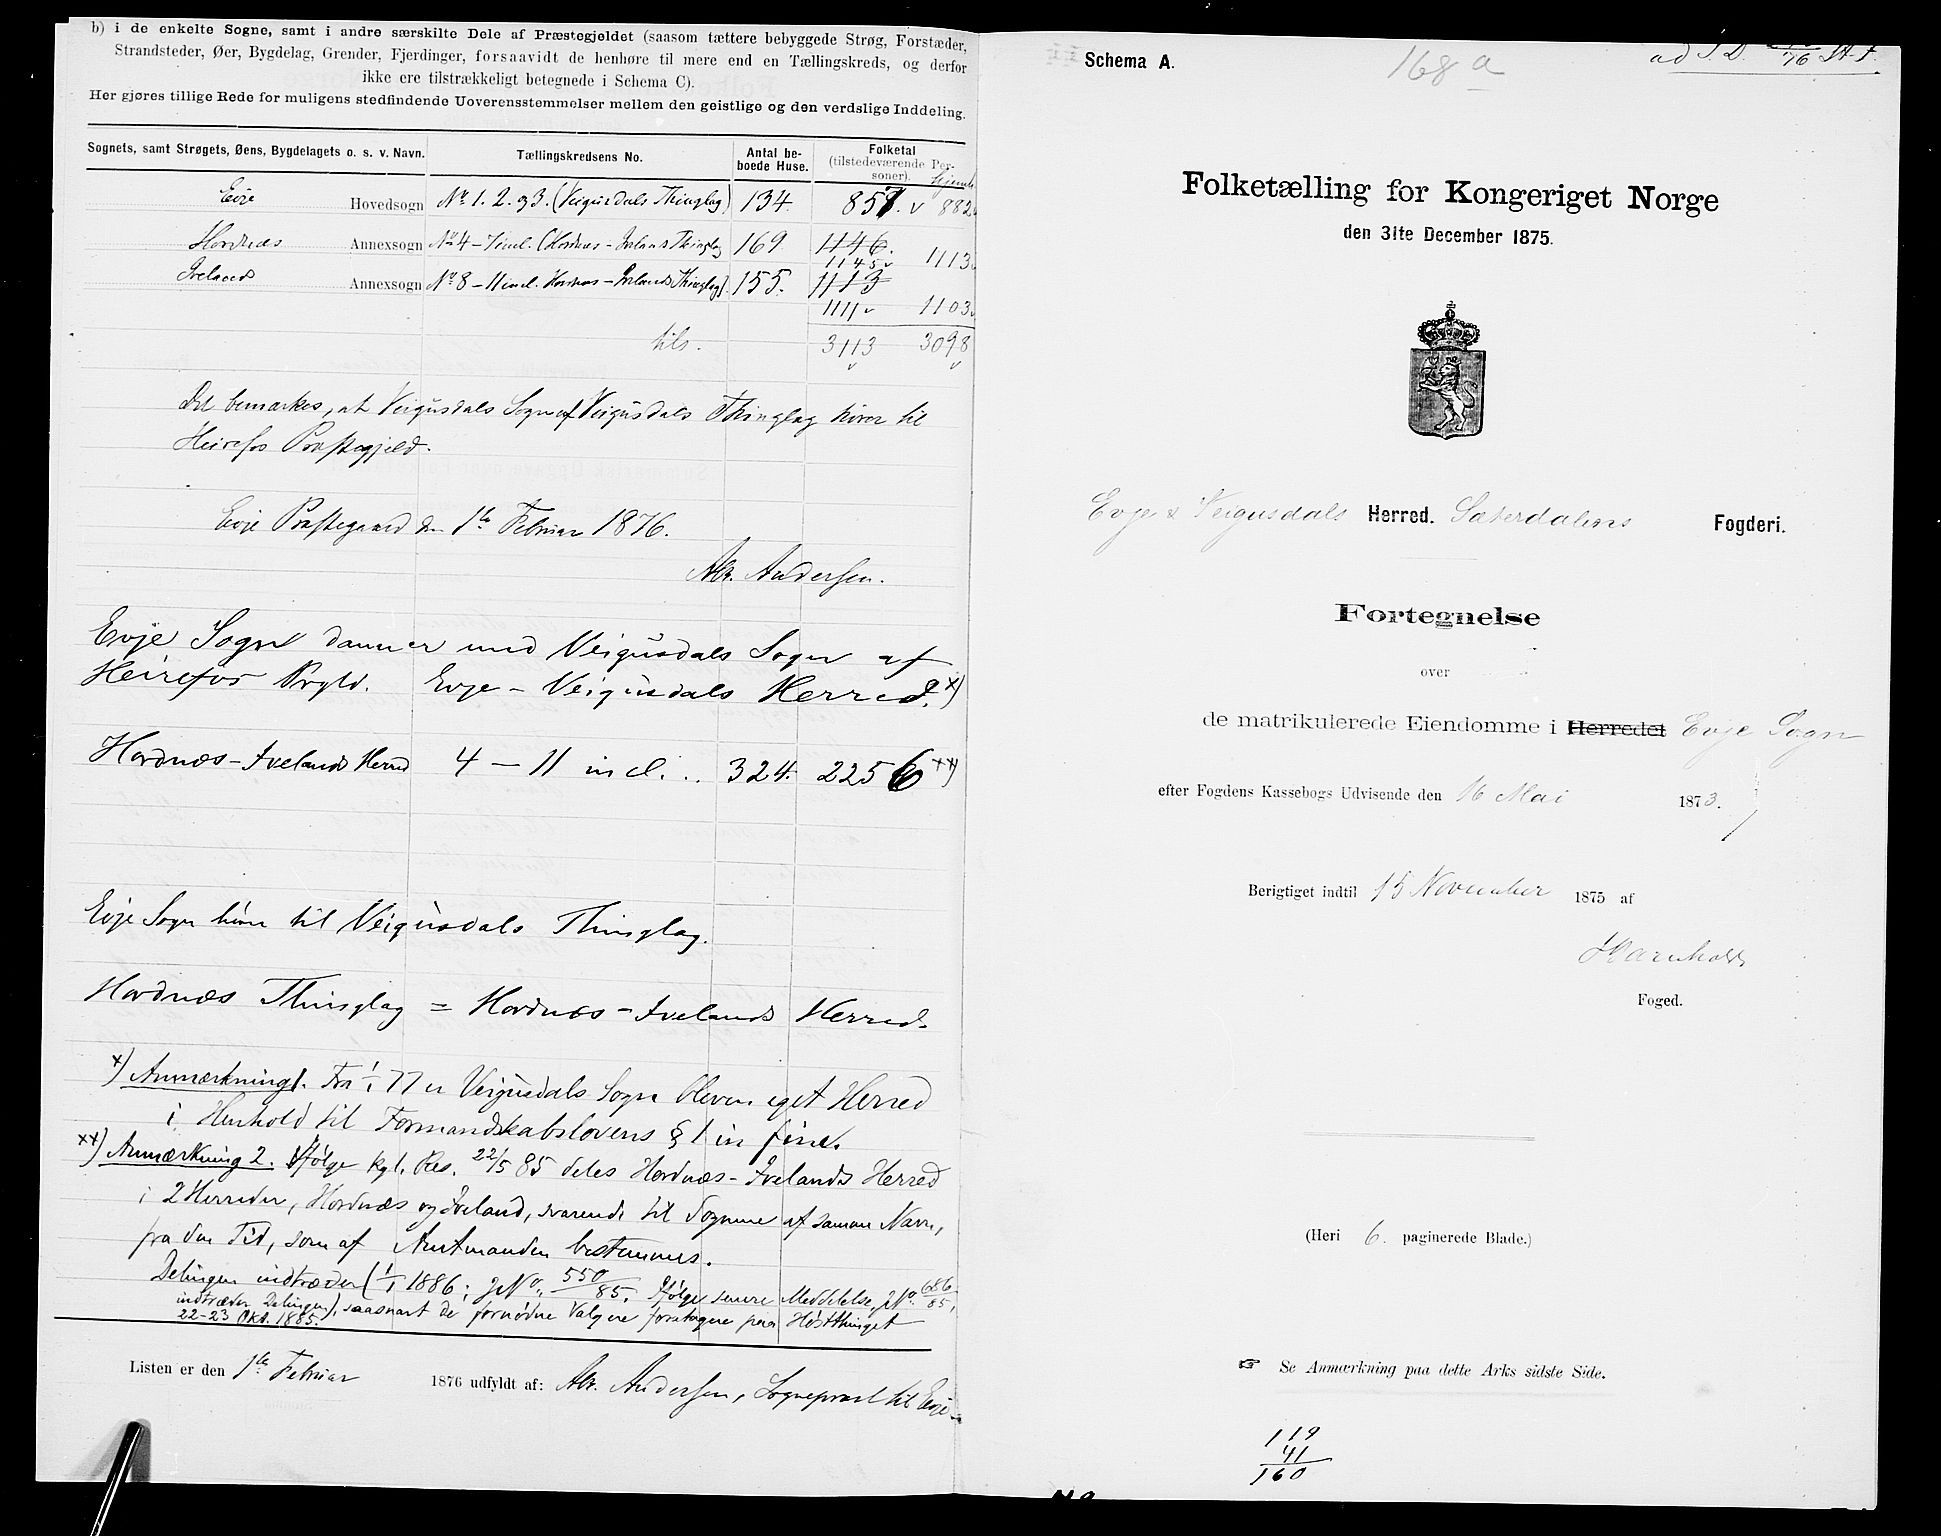 b) i de enkelte Sogne, samt i andre særskilte Dele af Præstegjeldet (saasom tættere bebyggede Strøg, Forstæder,
Strandsteder, Øer, Bygdelag, Grender, Fjerdinger, forsaavidt de henhøre til mere end en Tællingskreds, og derfor
ikke ere tilstrækkeligt betegnede i Schema C).
Her gjøres tillige Rede for muligens stedfindende Uoverensstemmelser mellem den geistlige og den verdslige Inddeling.
Sognets, samt Strøgets, Øens, Bygdelagets o. s. v. Navn. Tællingskredsens No. Antal be-boede Huse. Folketal (tilstedeværende Per-soner). hjemh.
Evje Hovedsogn No 1. 2. og 3. (Veigusdals Thinglag) 134. 857. v 882
Hordnæs Annexsogn No 4 – 7 incl. (Hordnæs – Ivelands Thinglag 169 1146.
1145 v 1113 v
Iveland Annexsogn No 8 – 11 incl. Hordnæs – Ivelands Thinglag). 155. 1113
1111 v 1103 v
tils. 3113 3098
v v
Det bemærkes, at Veigusdals Sogn af Veigusdals Thinglag hører til
Heirefos Præstegjeld.
Evje Præstegaard den 1ste Februar 1876.
Alr. Andersen.
Evje Sogn danner med Veigusdals Sogn af
Heirefos Prgld. Evje – Veigusdals Herred. x)
Hordnæs – Ivelands Herred 4 – 11 incl. .. 324. 2256 xx)
Evje Sogn hører til Veigusdals Thinglag.
Hordnæs Thinglag = Hordnæs – Ivelands Herred.
x) Anmærkning 1. Fra 1/1 77 er Veigusdals Sogn bleven eget Herred
i Henhold til Formandskabslovens § 1 in fine.
xx) Anmærkning 2. Ifølge kgl. Res. 22/5 85 deles Hordnæs – Ivelands Herred
i 2 Herreder, Hordnæs og Iveland, svarende til Sognene af samme Navn,
fra den Tid, som af Amtmanden bestemmes.
Delingen indtræder (1/1 1886; JNo. 550/85. Ifølge senere Meddelelse, JNo. 686/85,
indtræder Delingen), saasnart de fornødne Valg ere foretagne paa Høstthinget
22–23 Okt. 1885.
Listen er den 1ste Februar 1876 udfyldt af: Alr. Andersen, Sognepræst til Evje.
Schema A. 168 a ad J. D. /76 St. F.
Folketælling for Kongeriget Norge
den 31te December 1875.
Evje & Veigusdals Herred. Sæterdalens Fogderi.
Fortegnelse
over
de matrikulerede Eiendomme i Herredet Evje Sogn
efter Fogdens Kassebogs Udvisende den 16 Mai 1873.
Berigtiget indtil 15 November 1875 af
Foged.
(Heri 6. paginerede Blade.)
☞ Se Anmærkning paa dette Arks sidste Side.
119
41
160